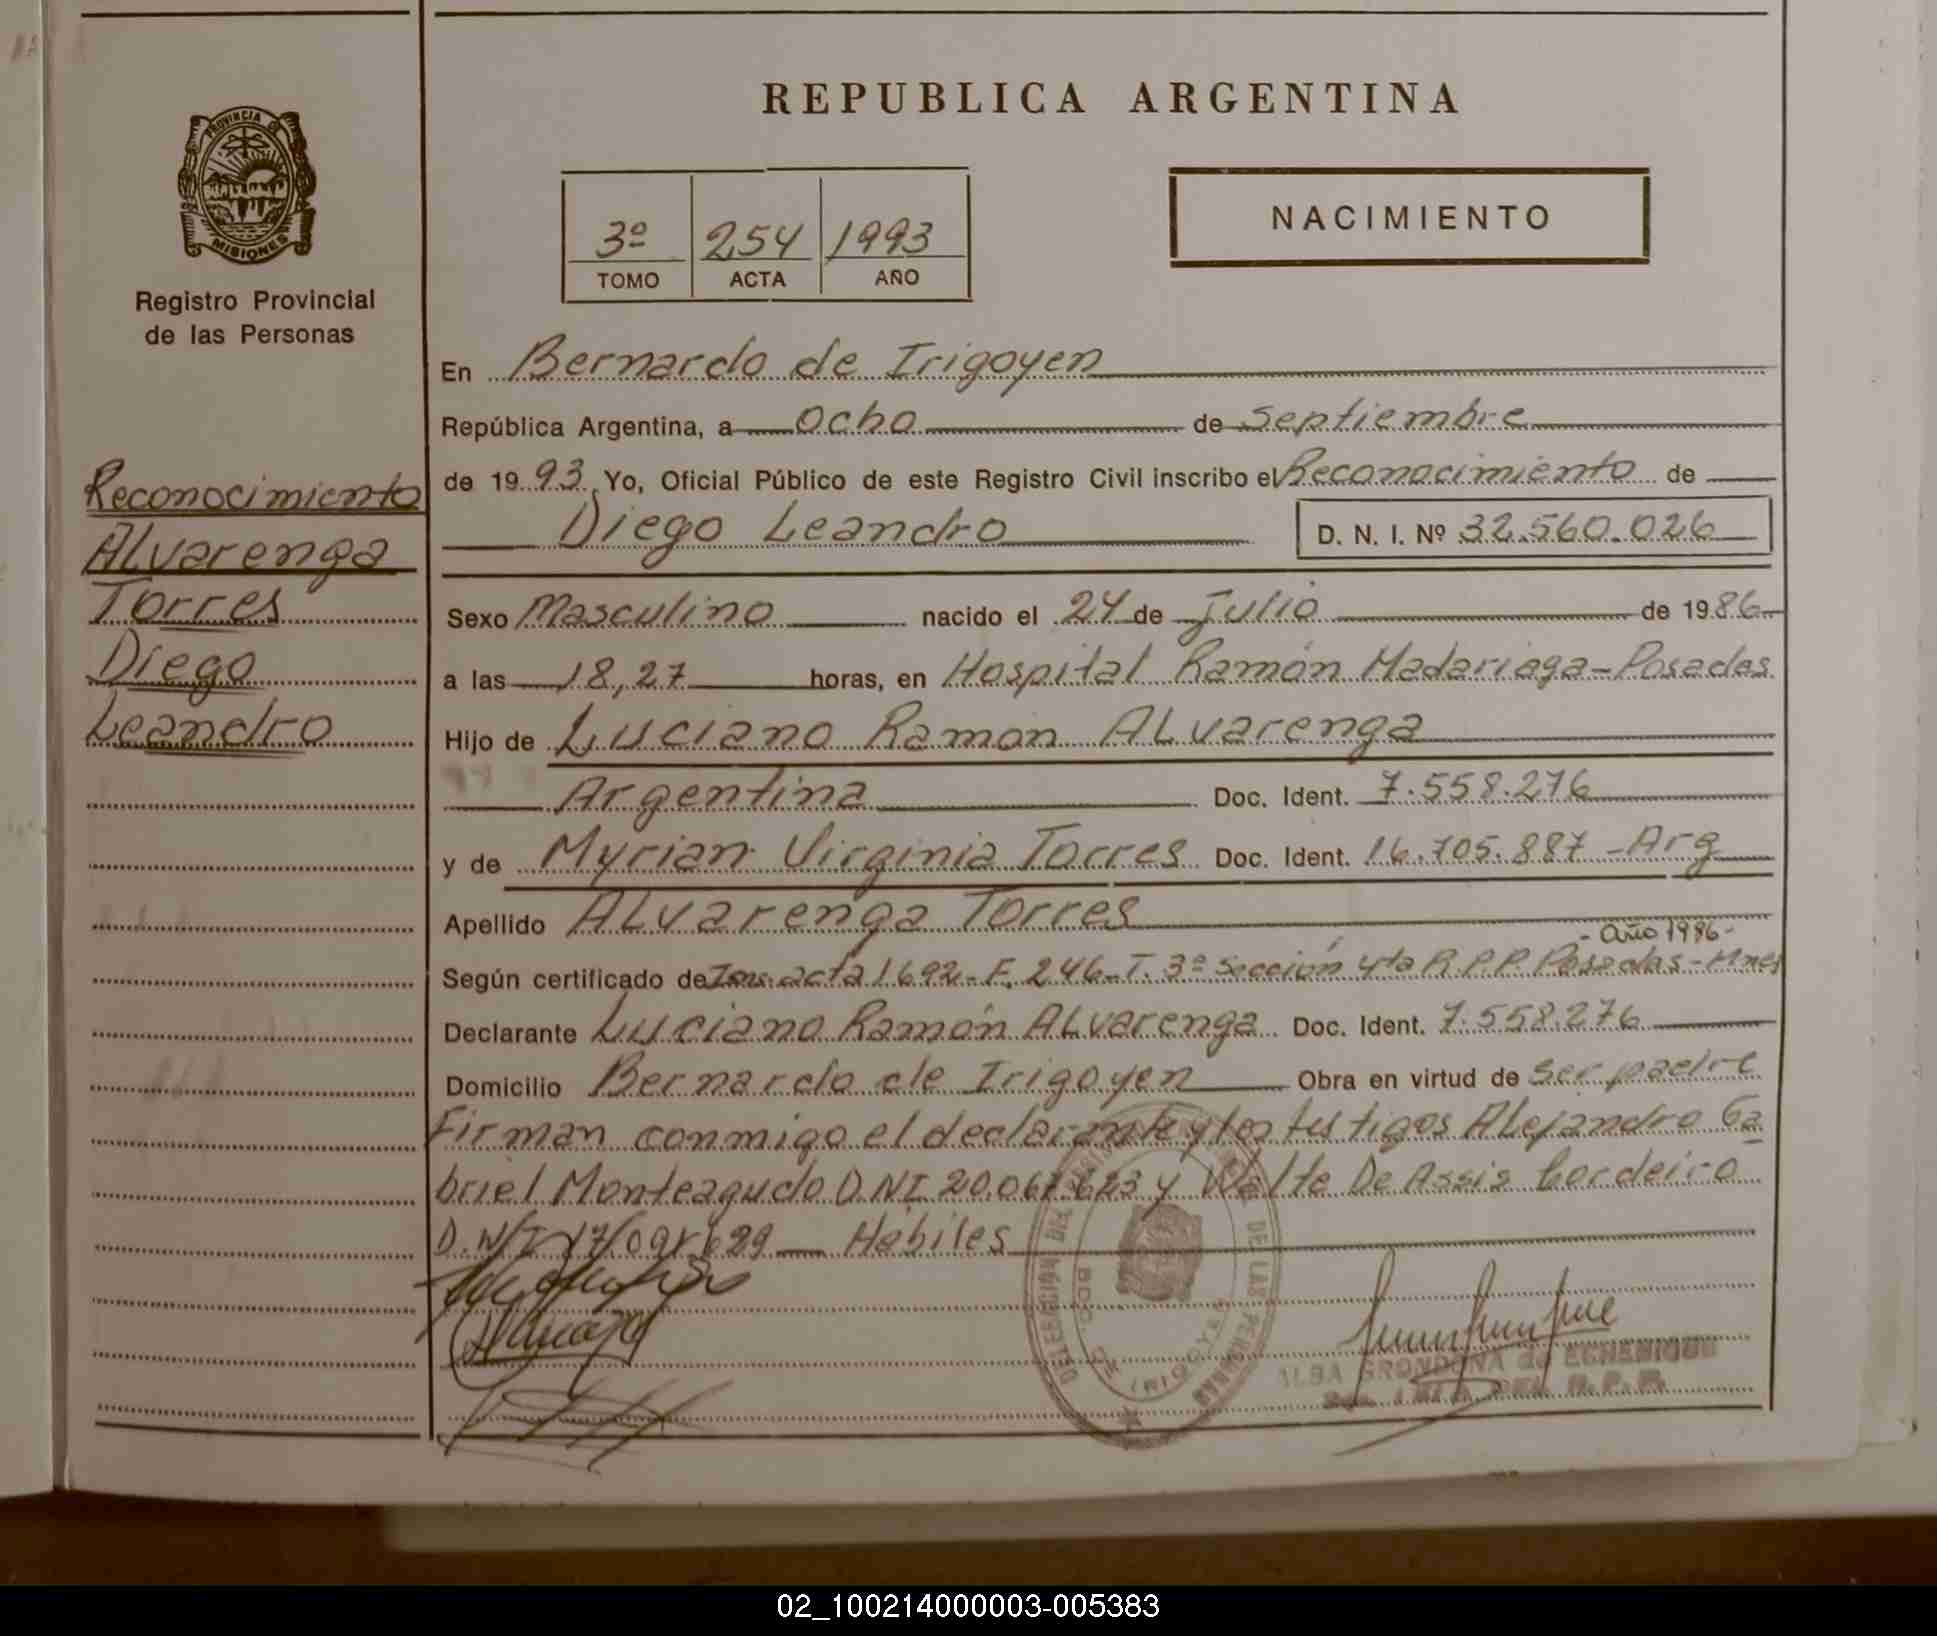 REPUBLICA ARGENTINA
PROVINCIA DE
MISIONES
Registro Provincial
de las Personas
3º 254 1993
TOMO ACTA AÑO
NACIMIENTO
Reconocimiento
Alvarenga
Torres
Diego
Leandro
En Bernardo de Irigoyen
República Argentina, a ocho de septiembre
de 1993 Yo, Oficial Público de este Registro Civil inscribo el Reconocimiento de
Diego Leandro D. N. I. Nº 32.560.026
Sexo Masculino nacido el 24 de Julio de 1986
a las 18,27 horas, en Hospital Ramón Madariaga - Posadas
Hijo de Luciano Ramón Alvarenga
Argentina Doc. Ident. 7.558.276
y de Myrian Virginia Torres Doc. Ident. 16.705.887 - Arg
Apellido Alvarenga Torres
- Año 1986 -
Según certificado de acta 1692 - F. 246 - T. 3º Sección 4ta R.P.P. Posadas - Mnes
Declarante Luciano Ramón Alvarenga Doc. Ident. 7.558.276
Domicilio Bernardo de Irigoyen Obra en virtud de ser padre
Firman conmigo el declarante y los testigos Alejandro Ga
briel Monteagudo D.N.I. y Walte De Assis Cordeiro
D.N.I Hábiles
DELEGACION DEL REGISTRO DE LAS PERSONAS
BDO. DE IRIGOYEN
ALBA GRONDONA de ECHENIQUE
DEL R. P. P.
02_100214000003-005383